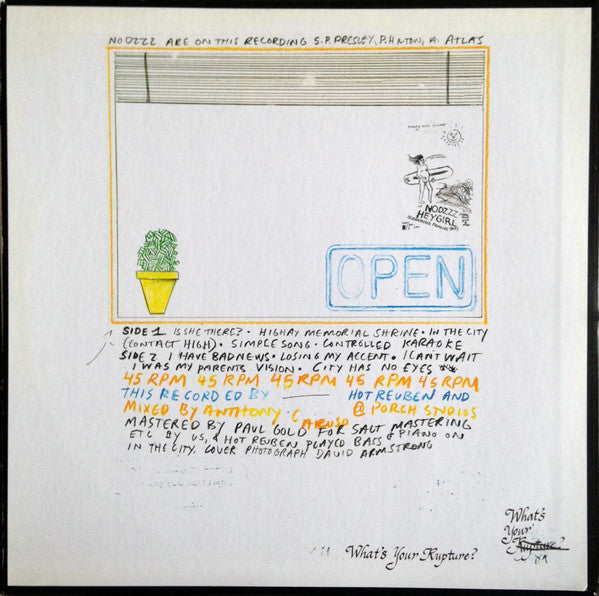 NODZZZ ARE ON THIS RECORDING S.P. PRESLEY, P. HINTON, A. ATLAS
NODZZZ
HEY GIRL
OPEN
SIDE 1 IS SHE THERE? • HIGHAY MEMORIAL SHRINE • IN THE CITY
(CONTACT HIGH) • SIMPLE SONG • CONTROLLED KARAOKE
SIDE 2 I HAVE BAD NEWS • LOSING MY ACCENT • I CANT WAIT
I WAS MY PARENTS VISION • CITY HAS NO EYES
45 RPM 45 RPM 45 RPM 45 RPM 45 RPM
THIS RECORDED BY —— HOT REUBEN AND
MIXED BY ANTHONY CARUSO @ PORCH STUDIOS
MASTERED BY PAUL GOLD FOR SALT MASTERING
ETC BY US, & HOT REUBEN PLAYED BASS & PIANO ON
IN THE CITY. COVER PHOTOGRAPH DAVID ARMSTRONG
What's Your Rupture?
What's
Your
Rupture?